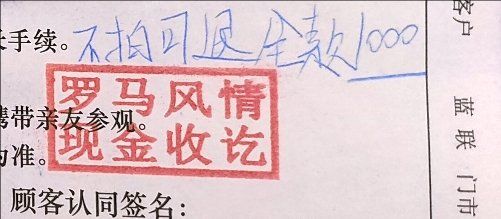 手续。不拍可退全款1000
罗马风情
携带亲友参观。
现金收讫
为准。
顾客认同签名:
客户
蓝联门市